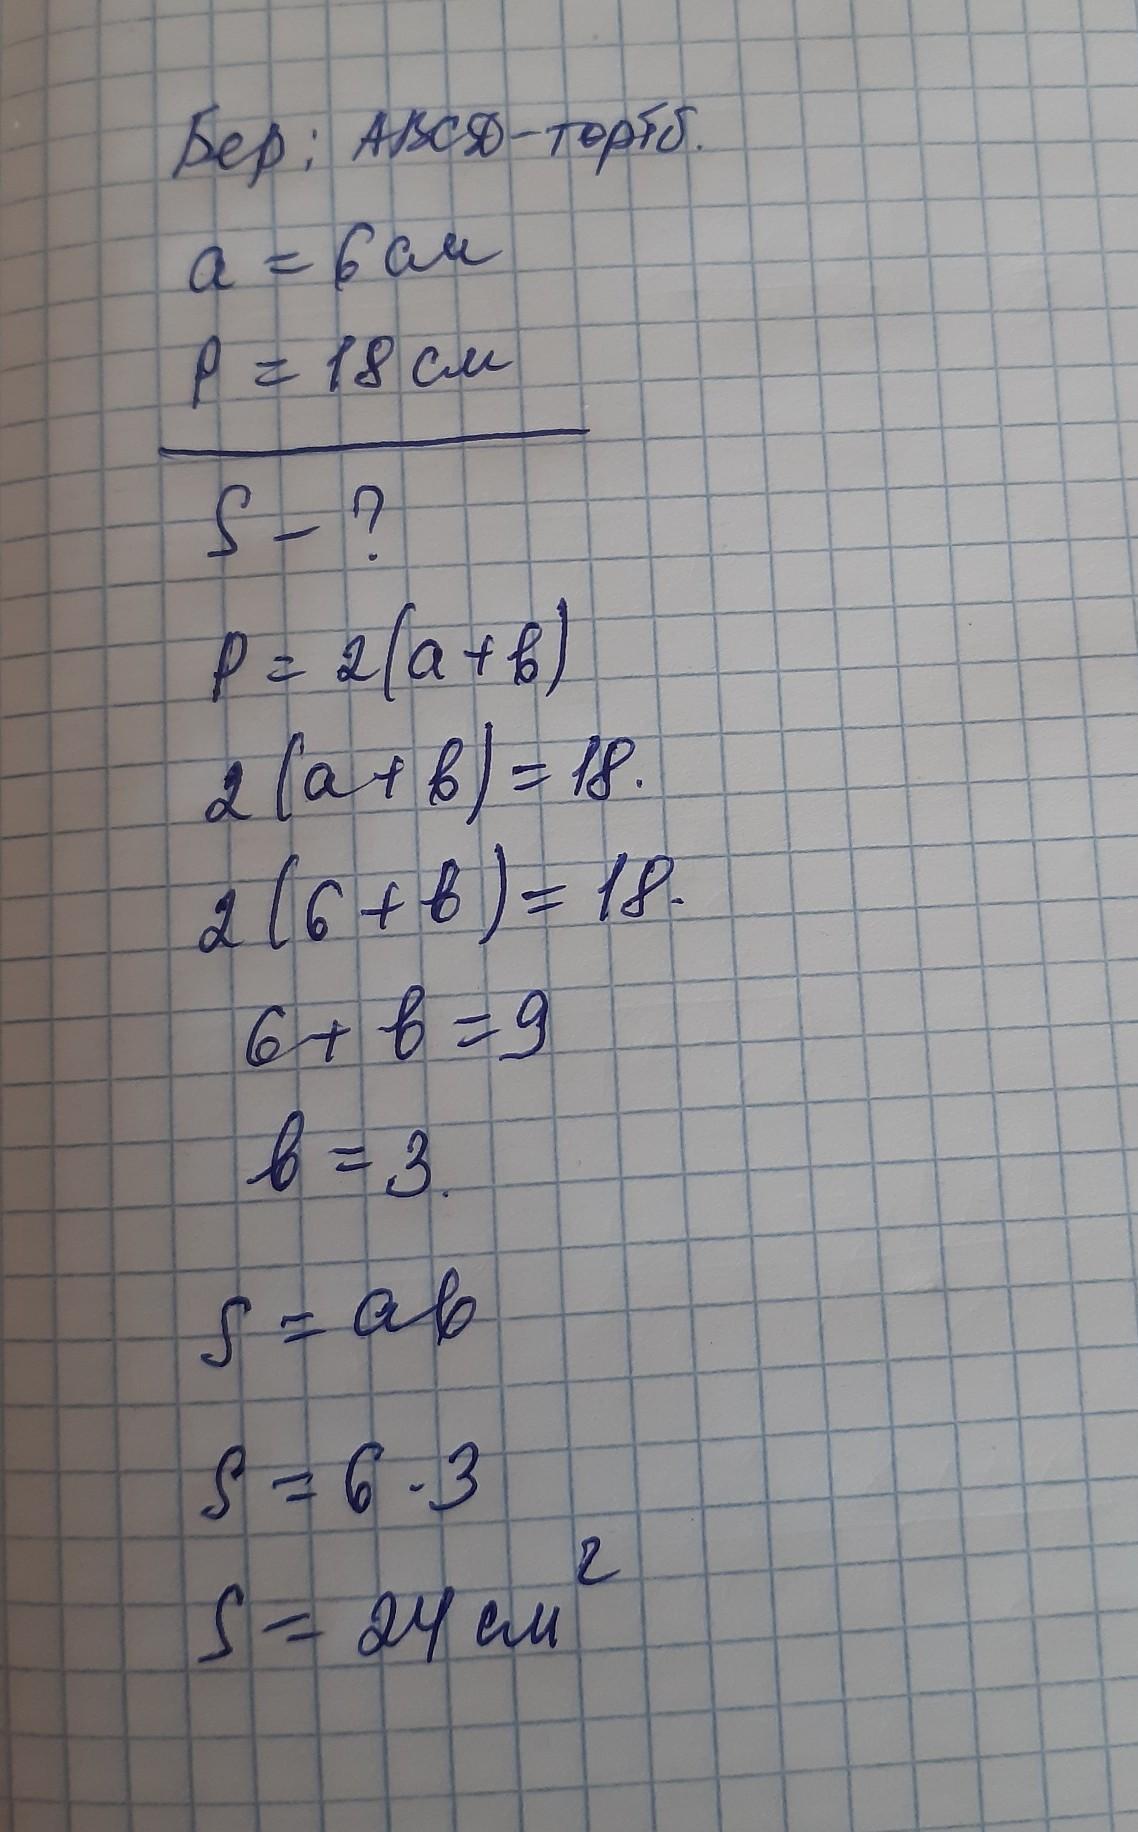 Бер: ABCD - тортб.
a = 6 см
P = 18 см
S - ?
P = 2(a+b)
2(a+b)=18.
2(6+b)=18.
6+b=9
b=3.
S=ab
S=6·3
S=24 см²